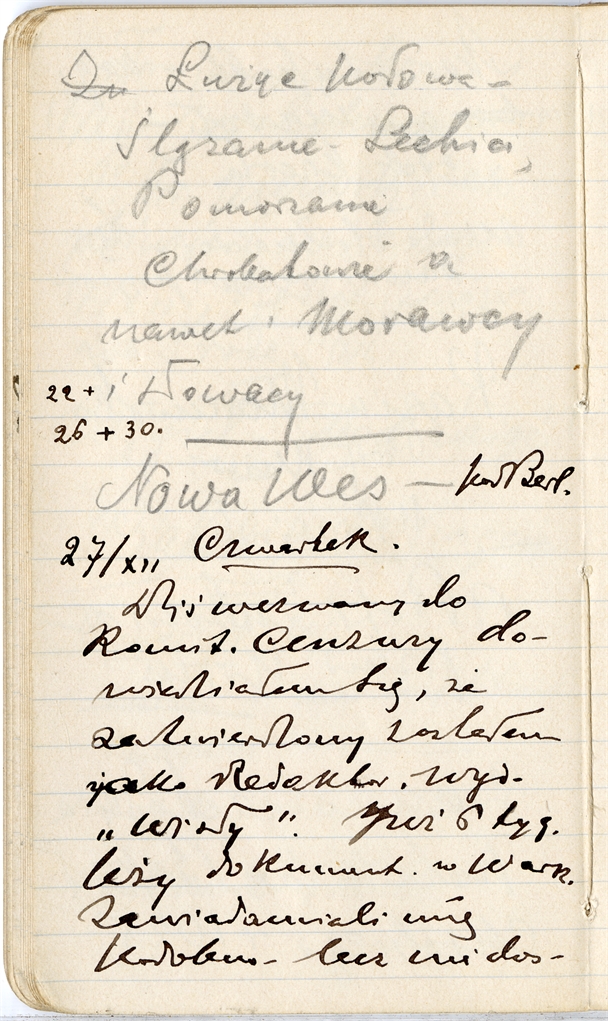 Łużyce
Lechia,
Pomorzanie
Chrobatowie a
nawet i Morawcy
22 + i Słowacy
26 + 30.
Nowa Wes — pod Berl.
27/XII Czwartek.
Dziś wezwany do
Komit. Cenzury do-
wiedziałem się, że
zatwierdzony zostałem
jako Redaktor, wyd.
„Wisły”. Już 6 tyg.
leży dokument. w Warsz.
Zawiadamiali mię
podobno – lecz nie dos-